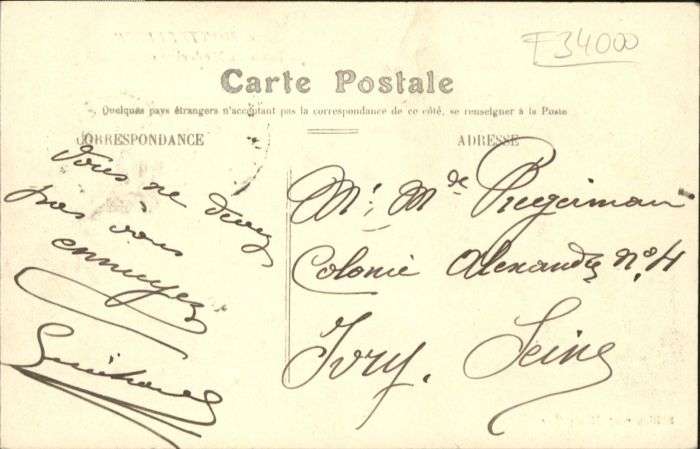 F34000
Carte Postale
Quelques pays étrangers n'acceptant pas la correspondance de ce côté, se renseigner à la Poste
CORRESPONDANCE
ADRESSE
Vous ne devez
pas vous
ennuyez
Mr. Mde
Colonie Alexandre No 4
Ivry. Seine